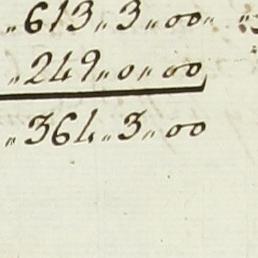 "613"3"00"
"249"0"00
"364"3"00